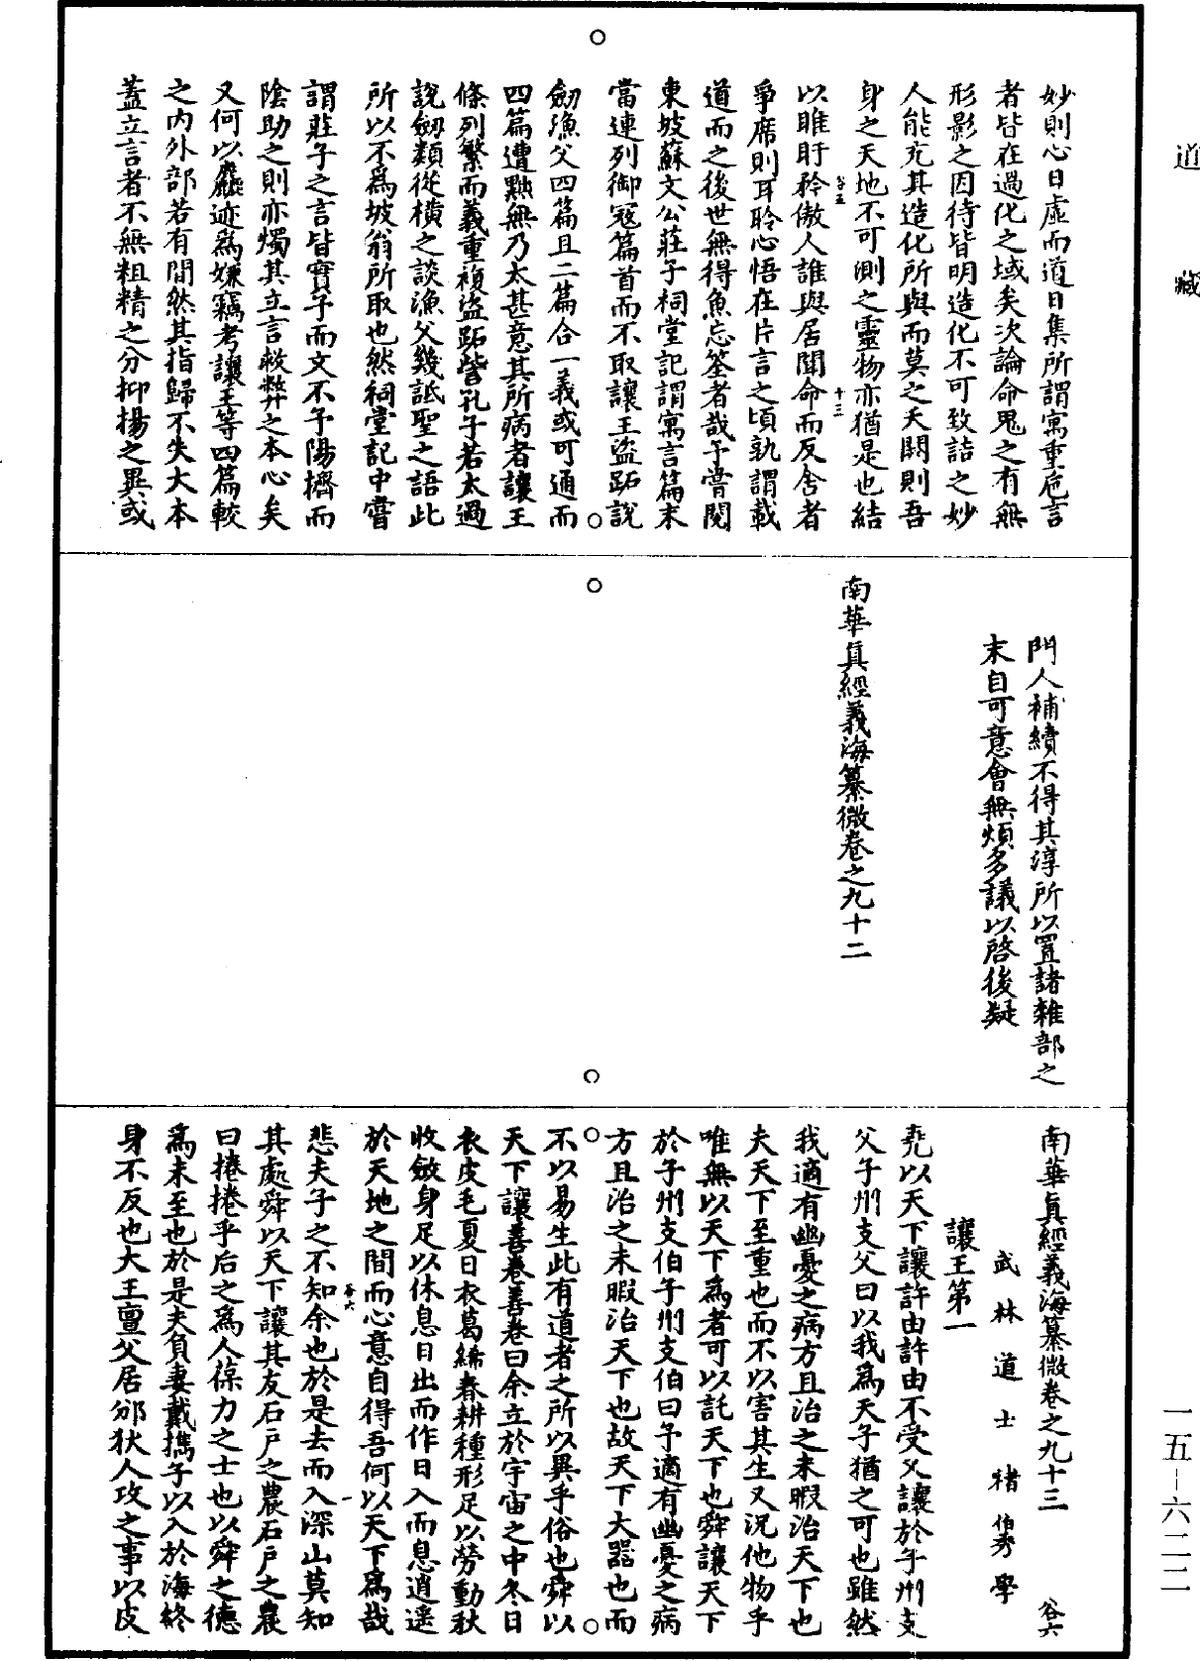 道藏
妙則心日虛而道日集所謂寓重巵言
者皆在過化之域矣次論命鬼之有無
形影之因待皆明造化不可致詰之妙
人能充其造化所與而莫之夭閼則吾
身之天地不可測之靈物亦猶是也結
谷五
十三
以睢盱矜傲人誰與居聞命而反舍者
爭席則耳聆心悟在片言之頃孰謂載
道而之後世無得魚忘筌者哉予嘗閱
東坡蘇文公莊子祠堂記謂寓言篇末
當連列御寇篇首而不取讓王盜跖說
劒漁父四篇且二篇合一義或可通而
四篇遭黜無乃太甚意其所病者讓王
條列繁而義重複盜跖訾孔子若太過
說劒類從橫之談漁父幾詆聖之語此
所以不爲坡翁所取也然祠堂記中嘗
謂莊子之言皆實予而文不予陽擠而
陰助之則亦燭其立言救弊之本心矣
又何以麤迹爲嫌竊考讓王等四篇較
之內外部若有間然其指歸不失大本
蓋立言者不無粗精之分抑揚之異或
門人補續不得其淳所以置諸雜部之
末自可意會無煩多議以啓後疑
南華眞經義海纂微卷之九十二
南華眞經義海纂微卷之九十三 谷六
武林道士褚伯秀學
讓王第一
堯以天下讓許由許由不受又讓於子州支
父子州支父曰以我爲天子猶之可也雖然
我適有幽憂之病方且治之未暇治天下也
夫天下至重也而不以害其生又況他物乎
唯無以天下爲者可以託天下也舜讓天下
於子州支伯子州支伯曰予適有幽憂之病
方且治之未暇治天下也故天下大器也而
不以易生此有道者之所以異乎俗也舜以
天下讓善卷善卷曰余立於宇宙之中冬日
衣皮毛夏日衣葛絺春耕種形足以勞動秋
收斂身足以休息日出而作日入而息逍遥
於天地之間而心意自得吾何以天下爲哉
谷六
一
悲夫子之不知余也於是去而入深山莫知
其處舜以天下讓其友石戶之農石戶之農
曰捲捲乎后之爲人葆力之士也以舜之德
爲未至也於是夫負妻戴攜子以入於海終
身不反也大王亶父居邠狄人攻之事以皮
一五-六二二